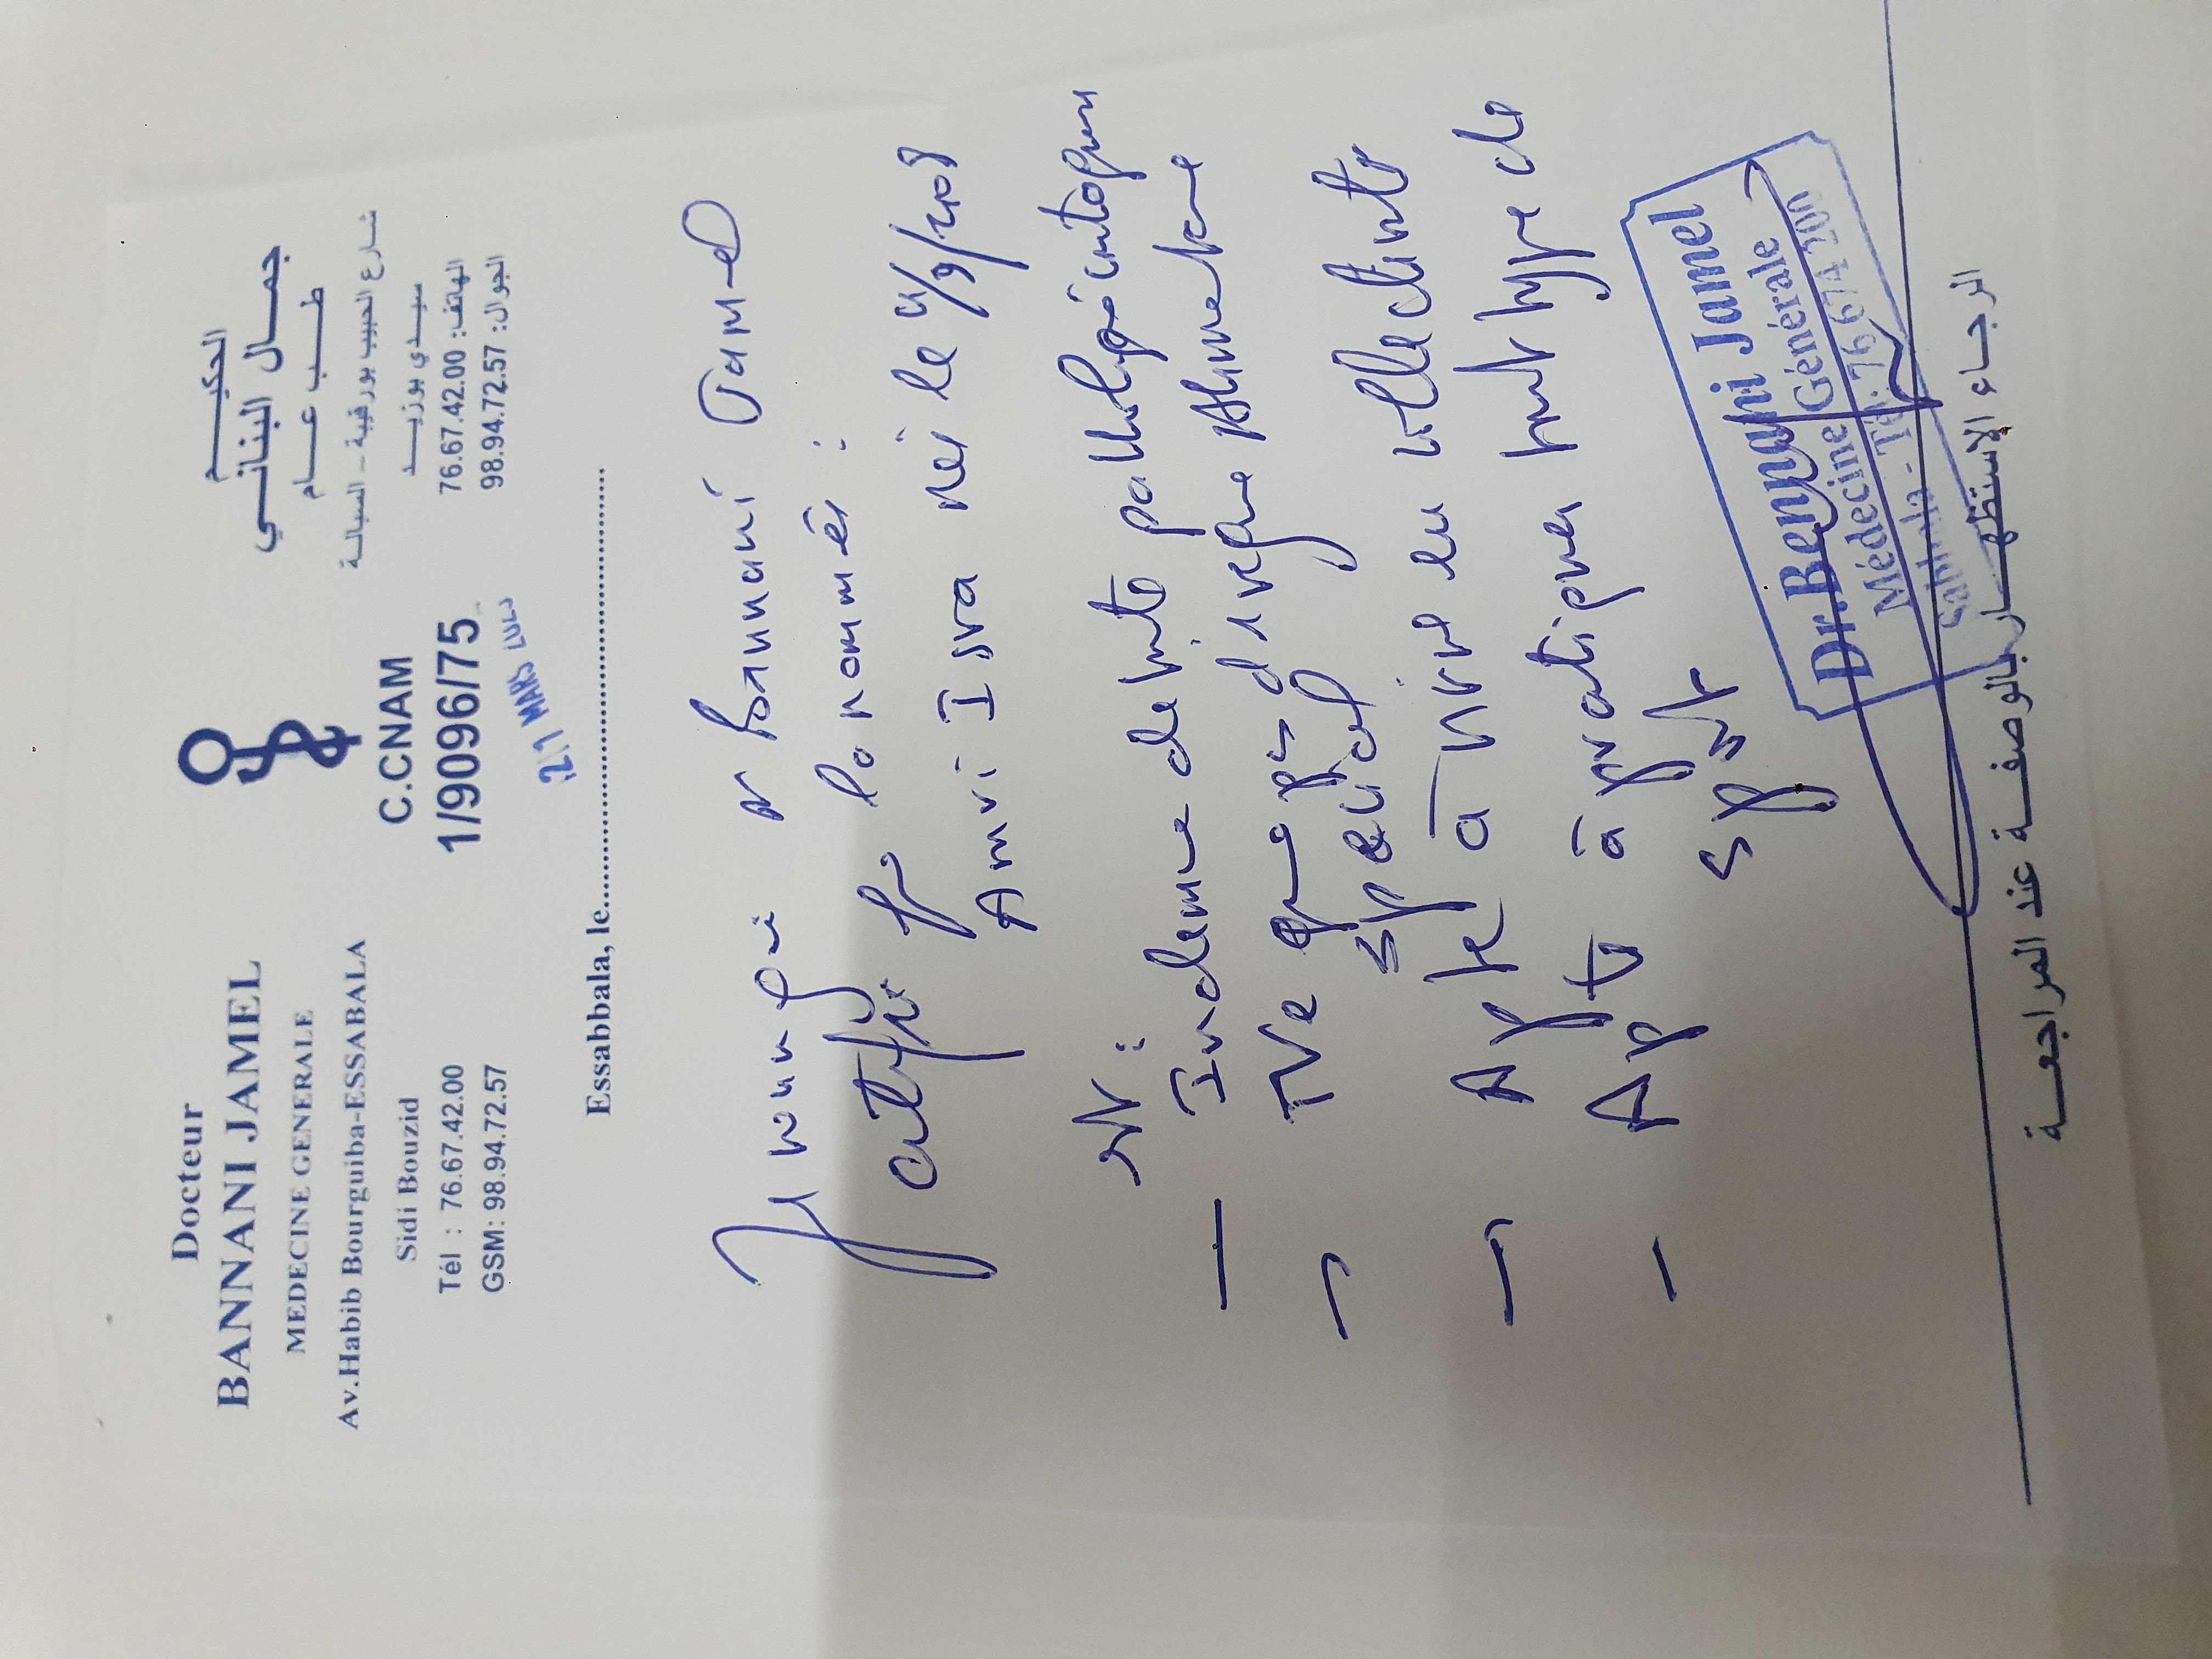 Docteur
BANNANI JAMEL
MEDECINE GENERALE
Av.Habib Bourguiba-ESSABALA
Sidi Bouzid
Tél : 76.67.42.00
GSM: 98.94.72.57
C.CNAM
1/9096/75
21 MARS
الحكيم
جمال البناني
طب عام
شارع الحبيب بورقيبة - السبالة
سيدي بوزيد
الهاتف: 76.67.42.00
الجوال: 98.94.72.57
Essabbala, le
Je soussigné Dr Bannani Jamel
certifie que le nommé :
Amri né le
est :
- Indemne de toute pathologie contagieuse
- Ne régime Alimentaire
spécial
- Apte à vivre en collectivité
- Apte à pratiquer tout type de
sport
Dr. Bennani Jamel
Médecine Générale
Sabbala - Tél: 76 674 200
الرجاء الإستظهار بالوصفة عند المراجعة